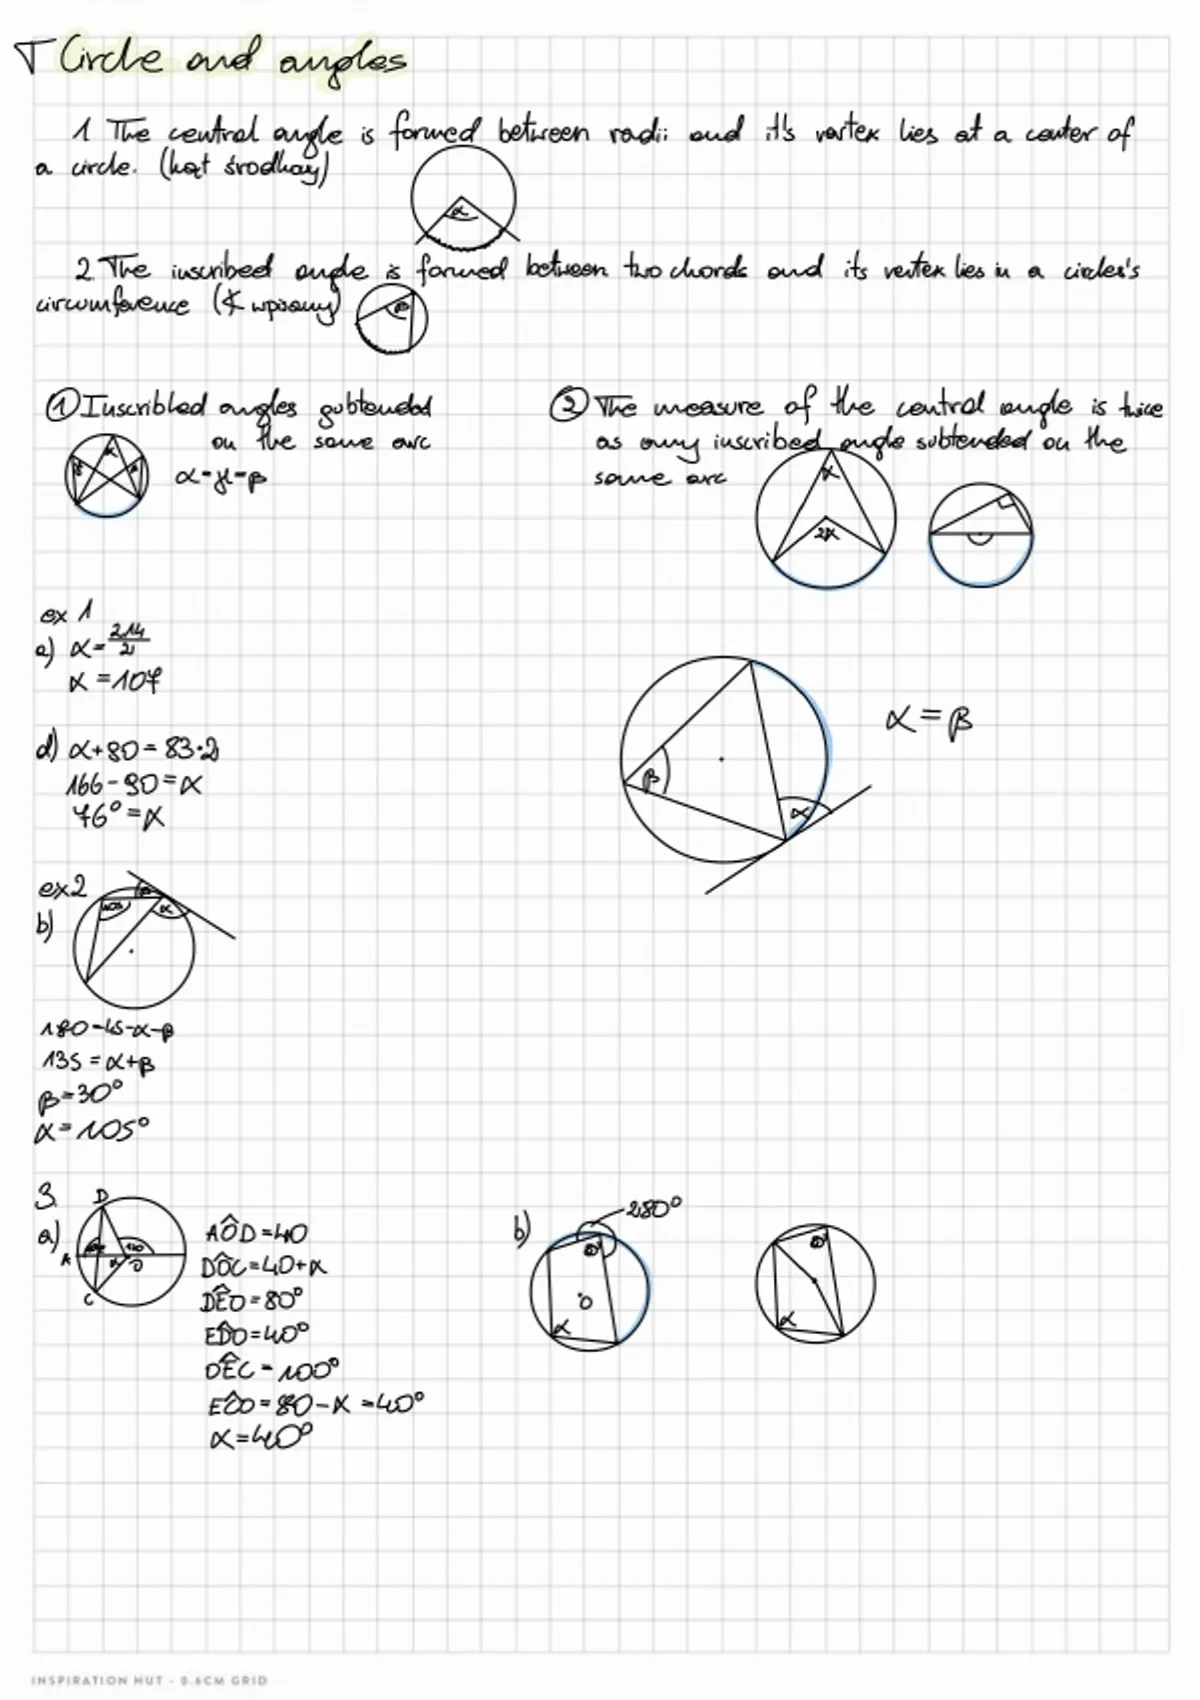 T Circle and angles
1 The central angle is formed between radii and it's vertex lies at a center of
a circle. (kąt środkowy)
α
2 The inscribed angle is formed between two chords and its vertex lies in a circles's
circumference (∢ wpisany)
β
① Inscribled angles subtended
on the same arc
α = γ = β
② The measure of the central angle is twice
as any inscribed angle subtended on the
same arc
α
2α
ex 1
a) α = 214/2
α = 107
α = β
β
α
d) α + 90 = 83·2
166 - 90 = α
76° = α
ex2
b)
105
β
α
180 - 45 - α - β
135 = α + β
β = 30°
α = 105°
3.
a)
D
A
C
O
α
AÔD = 40
DÔC = 40 + α
DÊO = 80°
ED̂O = 40°
OÊC = 100°
EĈO = 80 - α = 40°
α = 40°
b)
280°
O
α
α
INSPIRATION HUT - 0.6CM GRID